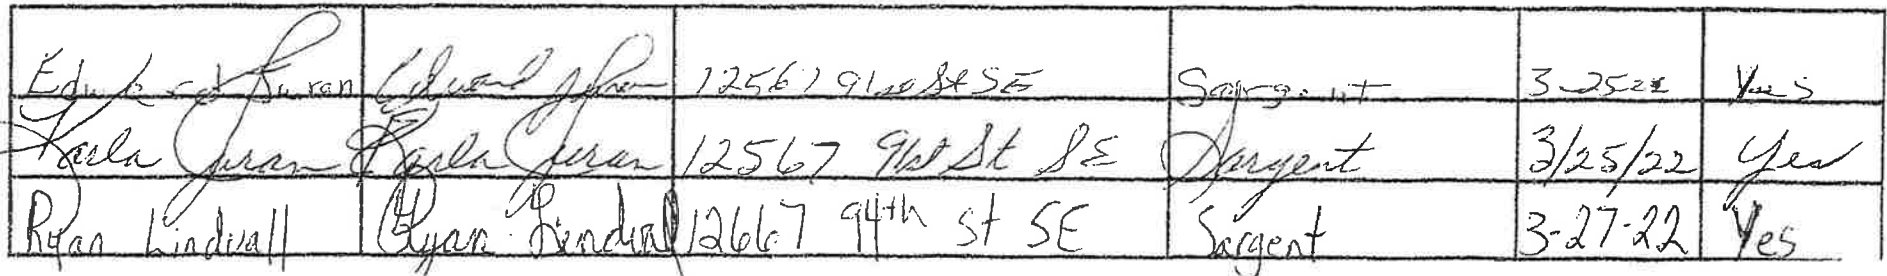 Edward Juran Edward Juran 12567 91st St SE Sargent 3-25-22 Yes
Karla Juran Karla Juran 12567 91st St SE Sargent 3/25/22 Yes
Ryan Lindvall Ryan Lindvall 12667 94th St SE Sargent 3-27-22 Yes